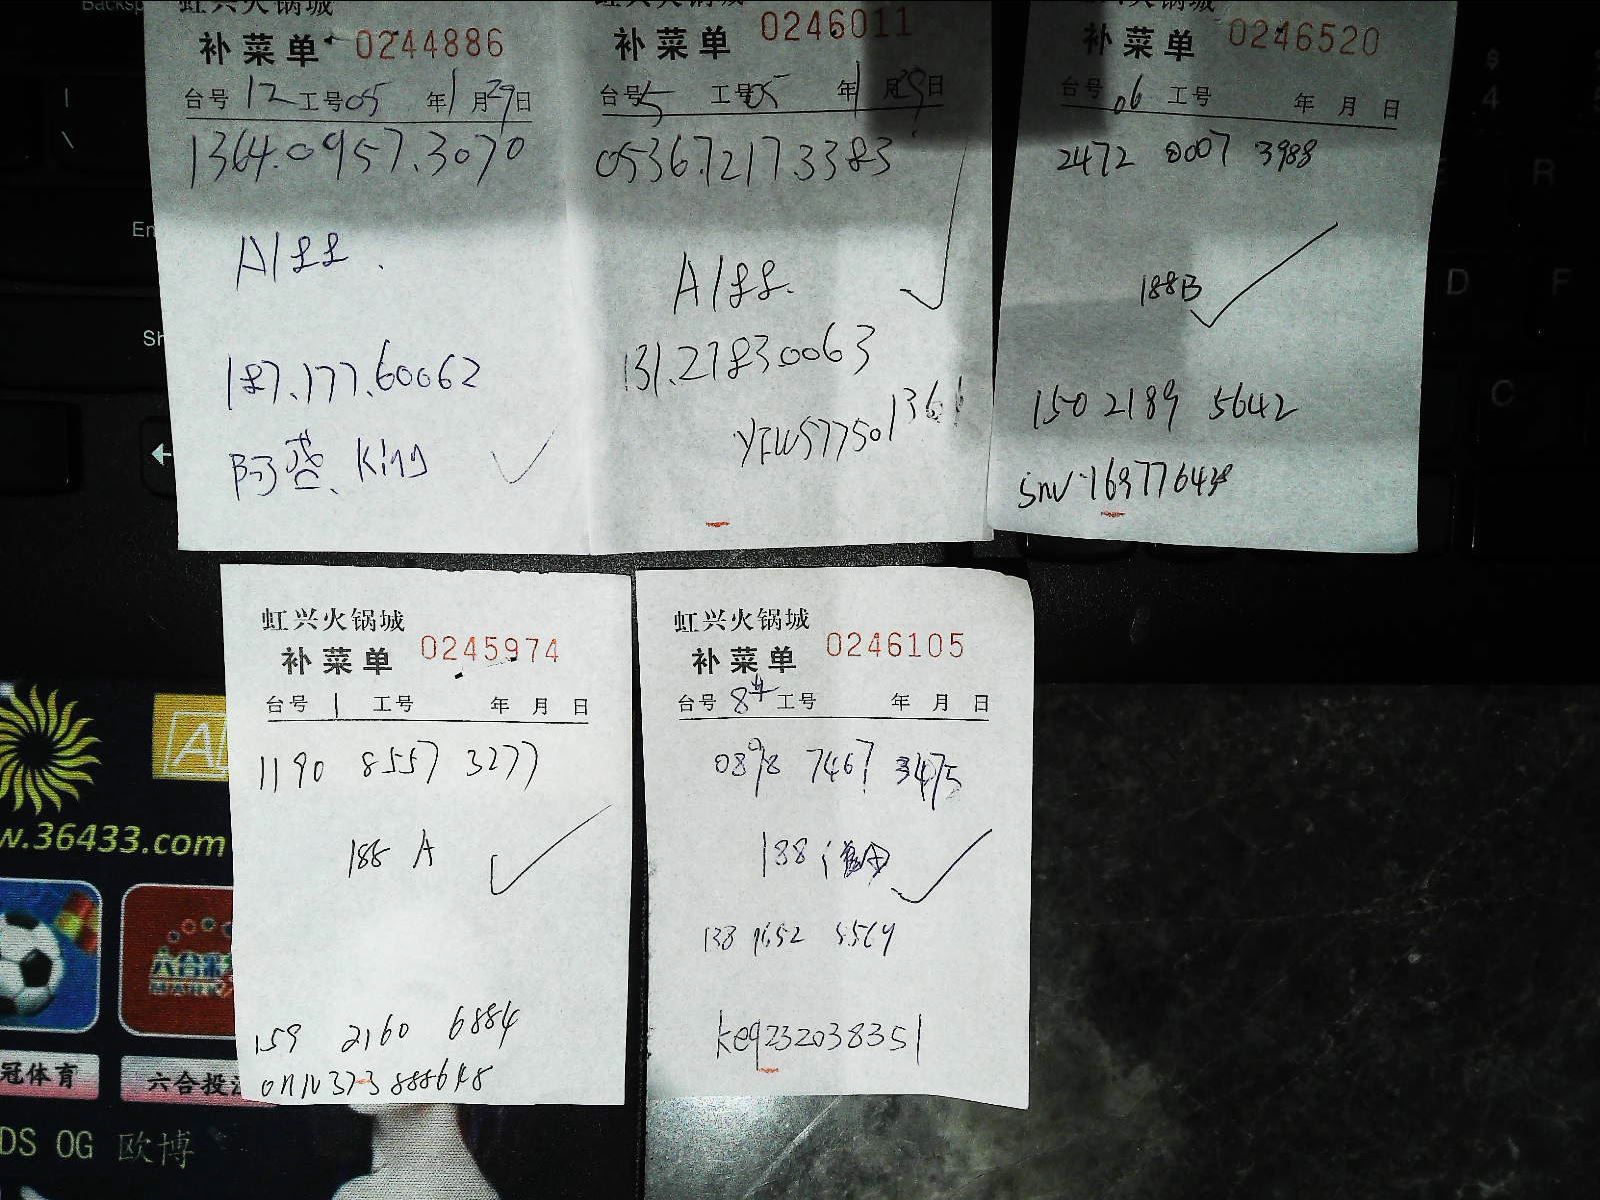 虹兴火锅城
补菜单 0244886
台号 12 工号 05 年 1 月 29 日
1364.0957.3070
A188.
187.177.60062
阿盛、King
虹兴火锅城
补菜单 0246011
台号 5 工号 05 年 1 月 29 日
0536.7217.3383
A188.
131.27830063
YFW577501366
火锅城
补菜单 0246520
台号 06 工号 年 月 日
2472 0007 3988
188B
150 2189 5642
虹兴火锅城
补菜单 0245974
台号 1 工号 年 月 日
1190 8557 3277
188 A
159 2160 6884
虹兴火锅城
补菜单 0246105
台号 8# 工号 年 月 日
0898 7467 3475
188
138
keq232038351
w.36433.com
冠体育
六合投注
DS OG 欧博
Backsp
En
Sh
$
4
R
D
F
C